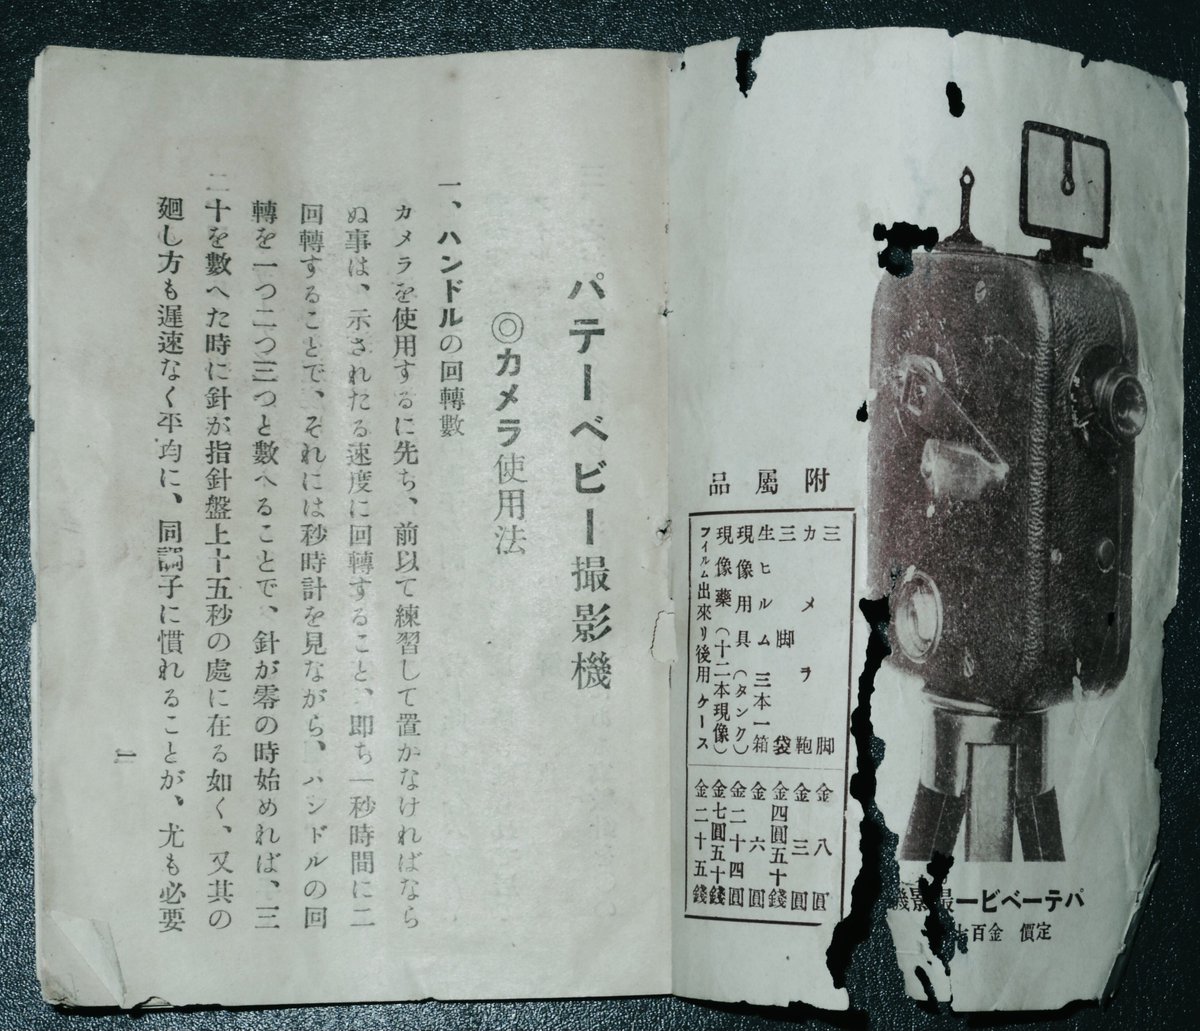 パテーベビー撮影機
定價 金百
附屬品
三脚 金八圓
カメラ鞄 金三圓
三脚袋 金四圓五十錢
生ヒルム 三本一箱 金六圓
現像用具(タンク) 金二十四圓
現像藥(十二本現像) 金七圓五十錢
フイルム出來リ後用ケース 金二十五錢
パテーベビー撮影機
◎カメラ使用法
一、ハンドルの回轉數
カメラを使用するに先ち、前以て練習して置かなければなら
ぬ事は、示されたる速度に回轉すること、即ち一秒時間に二
回轉することで、それには秒時計を見ながら、ハンドルの回
轉を一つ二つ三つと數へることで、針が零の時始めれば、三
二十を數へた時に針が指針盤上十五秒の處に在る如く、又其の
廻し方も遲速なく平均に、同調子に慣れることが、尤も必要